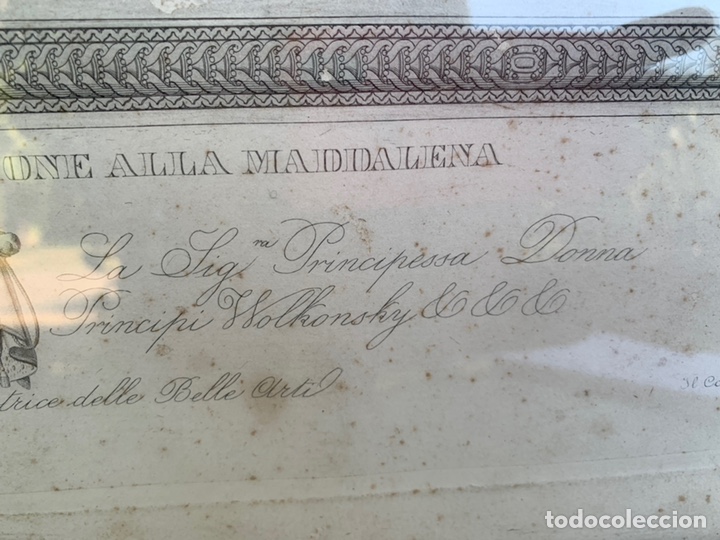 IONE ALLA MADDALENA
La Sig.ra Principessa Donna
Principi Wolkonsky & & &
trice delle Belle Arti
Il Ca
todocoleccion